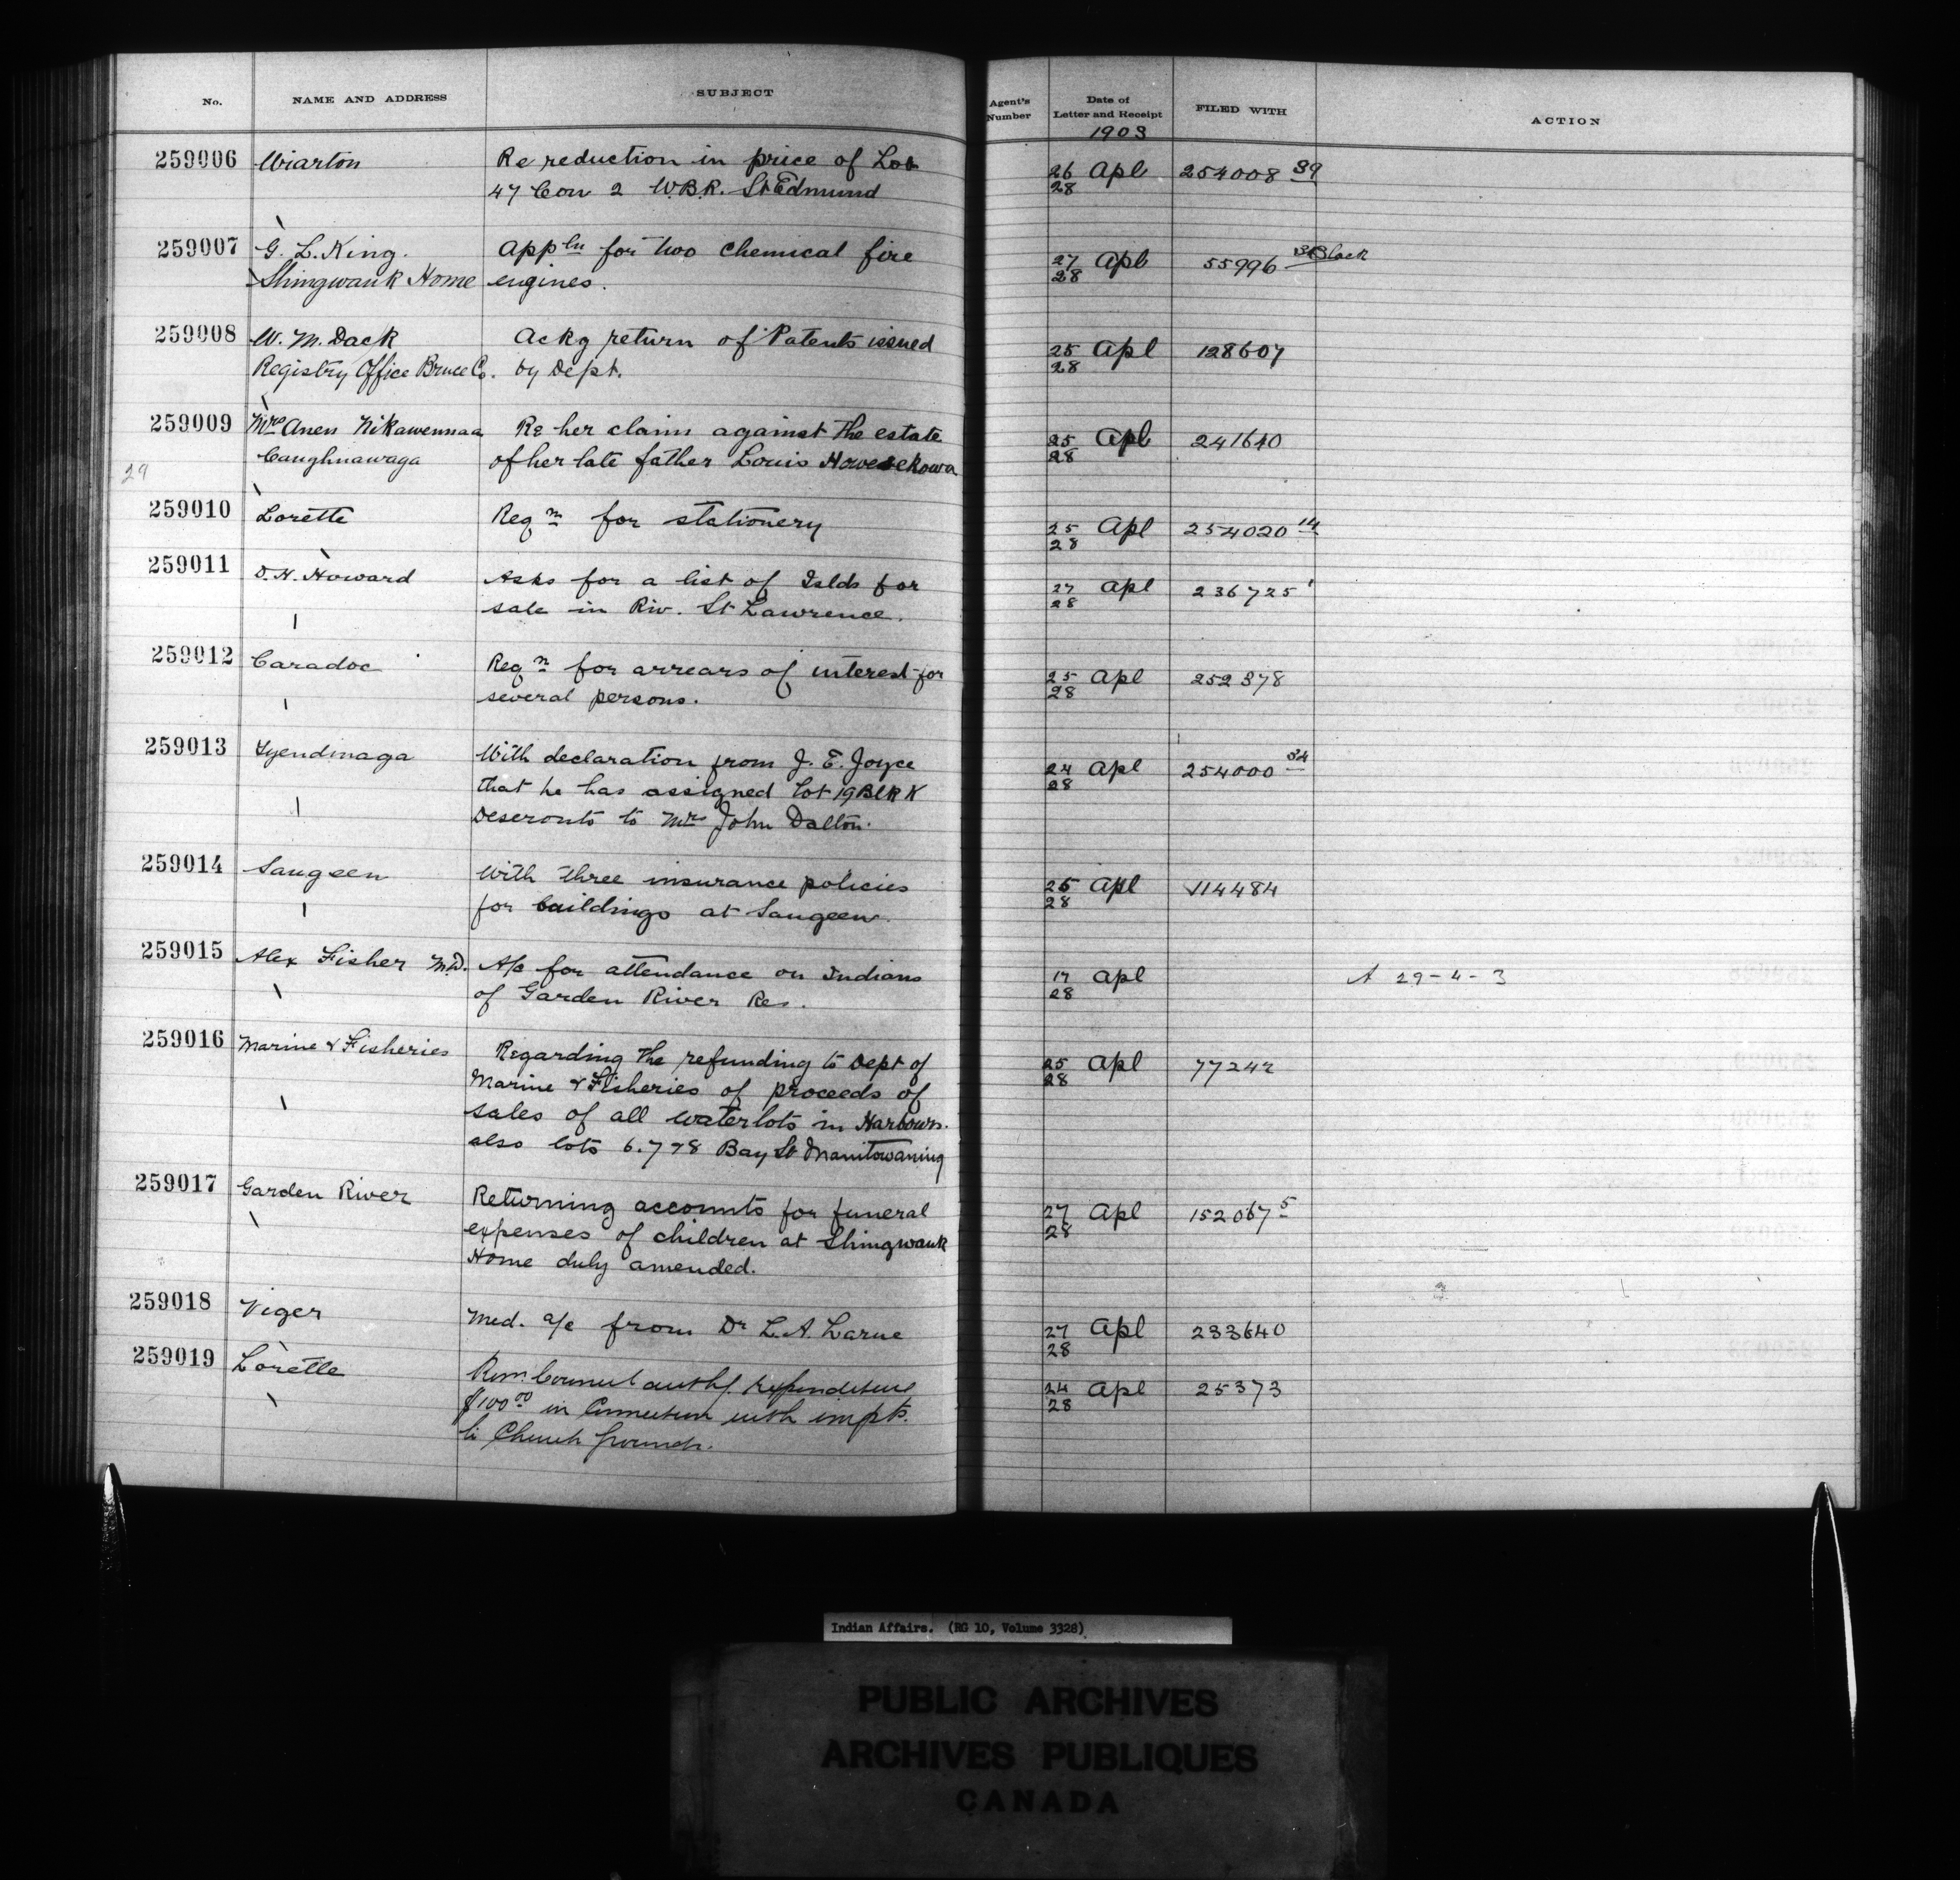 No. NAME AND ADDRESS SUBJECT Agent's Number Date of Letter and Receipt FILED WITH ACTION
1903
259006 Wiarton Re reduction in price of Lot 26 Apl 254008 39
47 Con 2 W.B.R. St Edmund 28
259007 G. L. King. Appln for two chemical fire 27 Apl 55996 Black
Shingwauk Home engines. 28
259008 W. M. Dack Ackg return of Patents issued 25 Apl 128607
Registry Office Bruce Co. by Dept. 28
259009 Mrs Anen Nikawennaa Re her claim against the estate 25 Apl 241610
29 Caughnawaga of her late father Louis 28
259010 Lorette Reqn for stationery 25 Apl 254020 14
28
259011 D. H. Howard Asks for a list of Islds for 27 Apl 236725 1
sale in Riv. St Lawrence. 28
259012 Caradoc Reqn for arrears of interest for 25 Apl 252378
several persons. 28
259013 Tyendinaga With declaration from J. E. Joyce 24 Apl 254000 34
that he has assigned Lot 19 Blk K 28
Deseronto to Mrs John Dalton.
259014 Saugeen With three insurance policies 25 Apl 114484
for buildings at Saugeen. 28
259015 Alex Fisher M.D. A/c for attendance on Indians 17 Apl A 29-4-3
of Garden River Res. 28
259016 Marine & Fisheries Regarding the refunding to Dept of 25 Apl 77242
Marine & Fisheries of proceeds of 28
sales of all waterlots in Harbours.
also lots 6.7 & 8 Bay St Manitowaning
259017 Garden River Returning accounts for funeral 27 Apl 152067 5
expenses of children at Shingwauk 28
Home duly amended.
259018 Viger Med. a/c from Dr L. A. Larue 27 Apl 233640
28
259019 Lorette Resn. Council authg. expenditure 24 Apl 25373
$100 00 in connection with impts. 28
to Church grounds.
Indian Affairs. (RG 10, Volume 3328)
PUBLIC ARCHIVES
ARCHIVES PUBLIQUES
CANADA